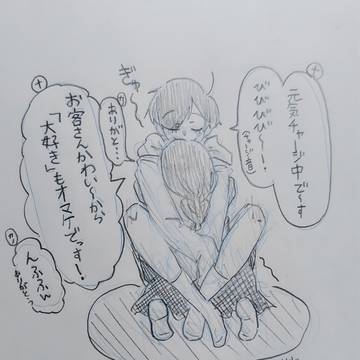 ナ
元気チャージ中で〜す
びびびび〜！
(チャージ音)
ぎゅ
カ
ありがと…
ナ
お客さんかわい〜から
「大好き」も
オマケでっす！
カ
んふふん
ありがと〜